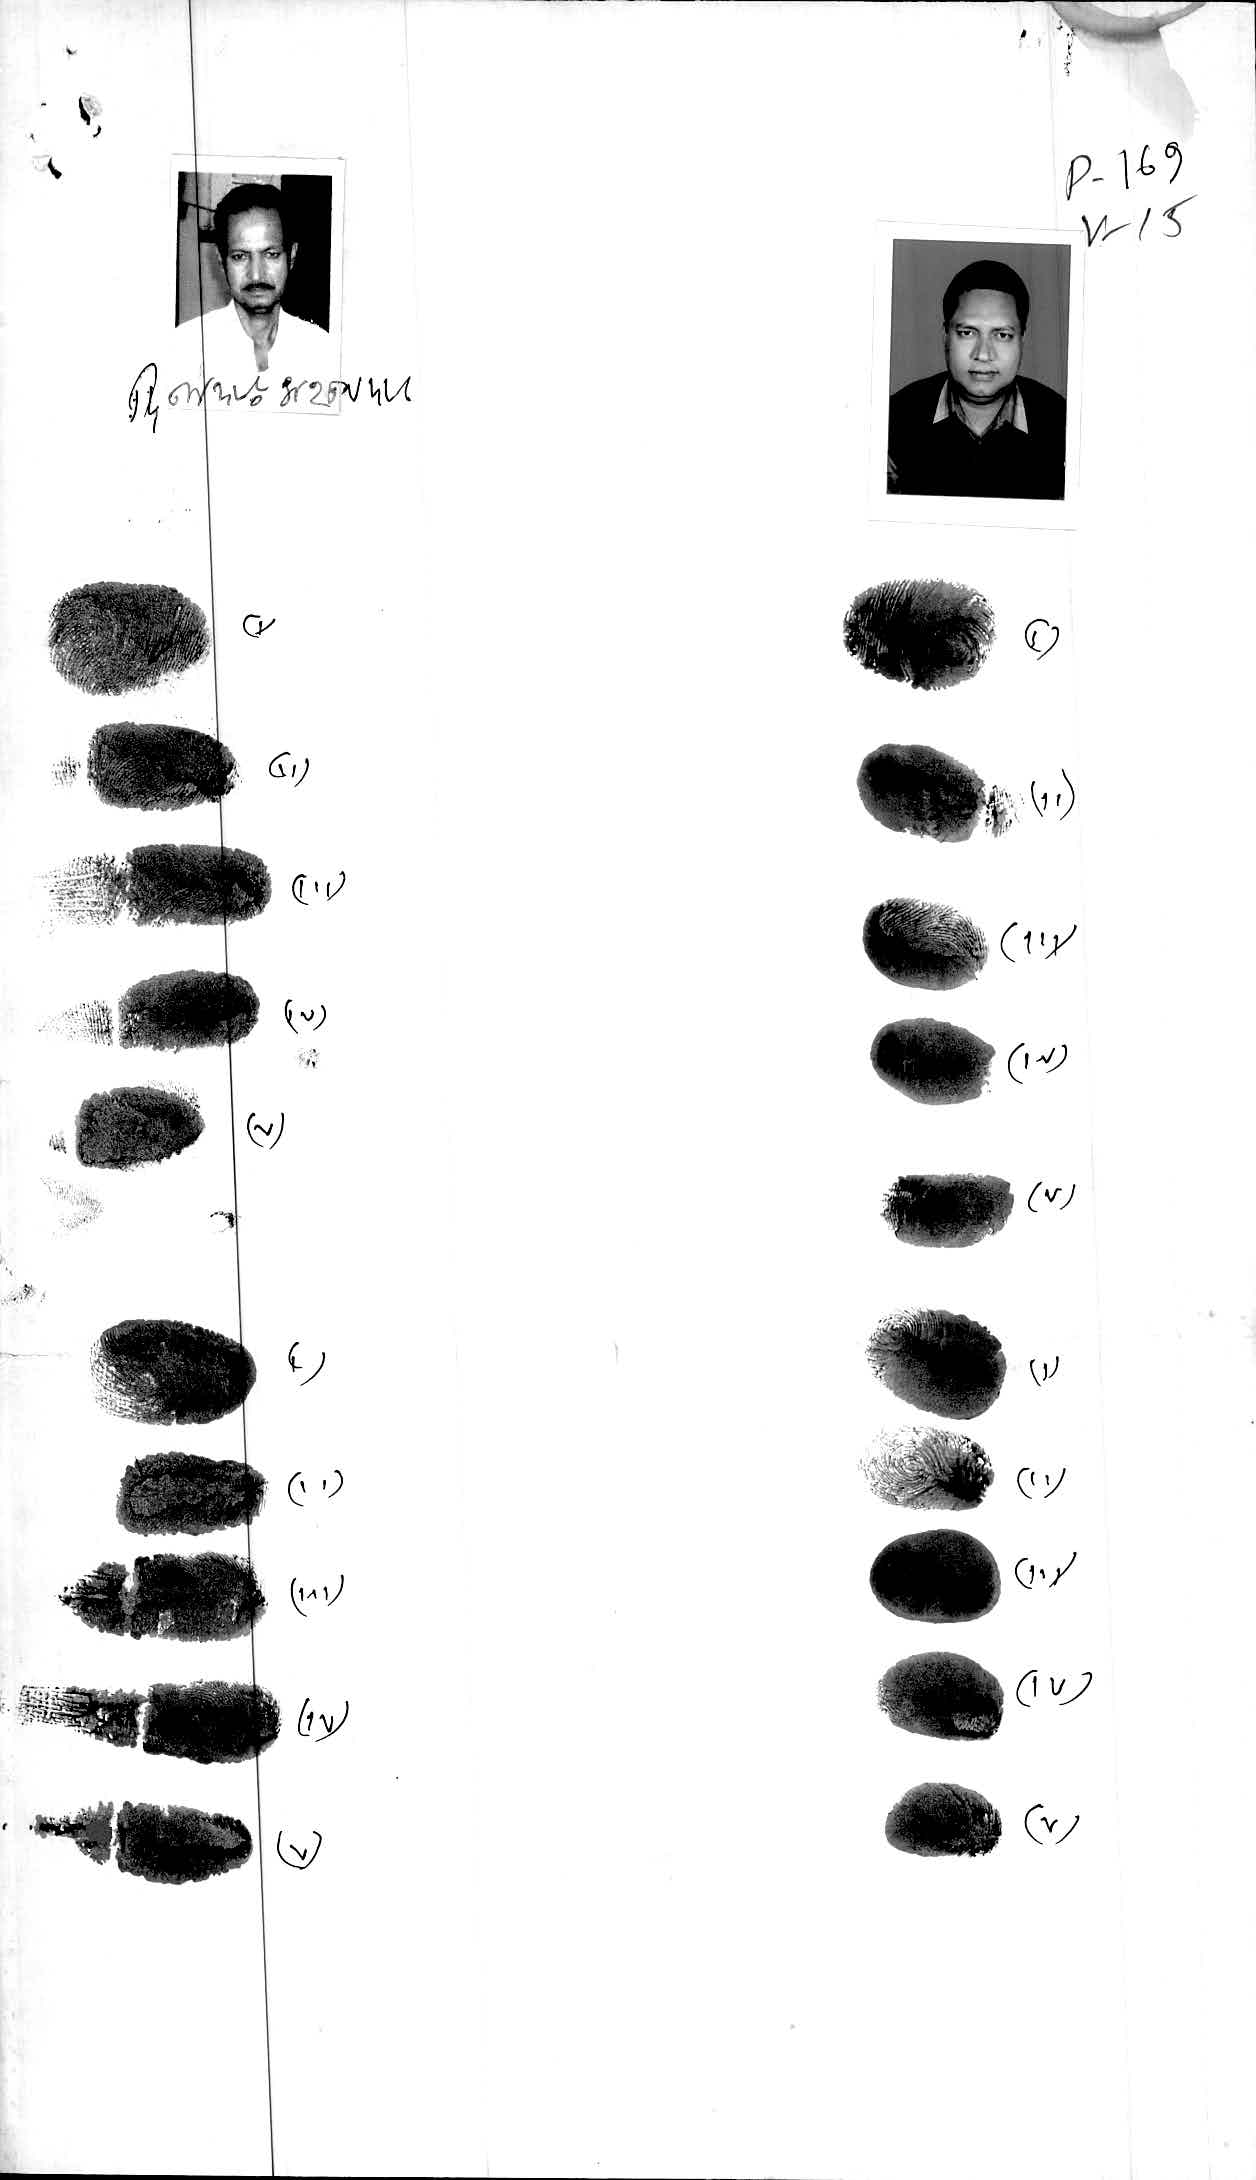 P-169
V-15
(i)
(i)
(ii)
(ii)
(iii)
(iii)
(iv)
(iv)
(v)
(v)
(i)
(i)
(ii)
(ii)
(iii)
(iii)
(iv)
(iv)
(v)
(v)